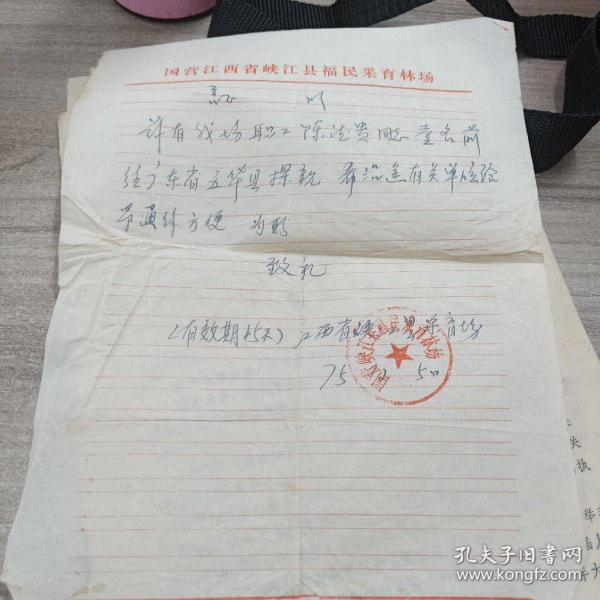 国营江西省峡江县福民采育林场
证 明
兹有我场职工陈法贵同志壹名前
往广东省五华县探亲 希沿途有关单位验
节通行方便 为盼
致礼
(有效期45天) 江西省峡江县采育场
75 5日
国营峡江县福民采育林场
失
执
举
孔夫子旧书网
www.kongfz.com